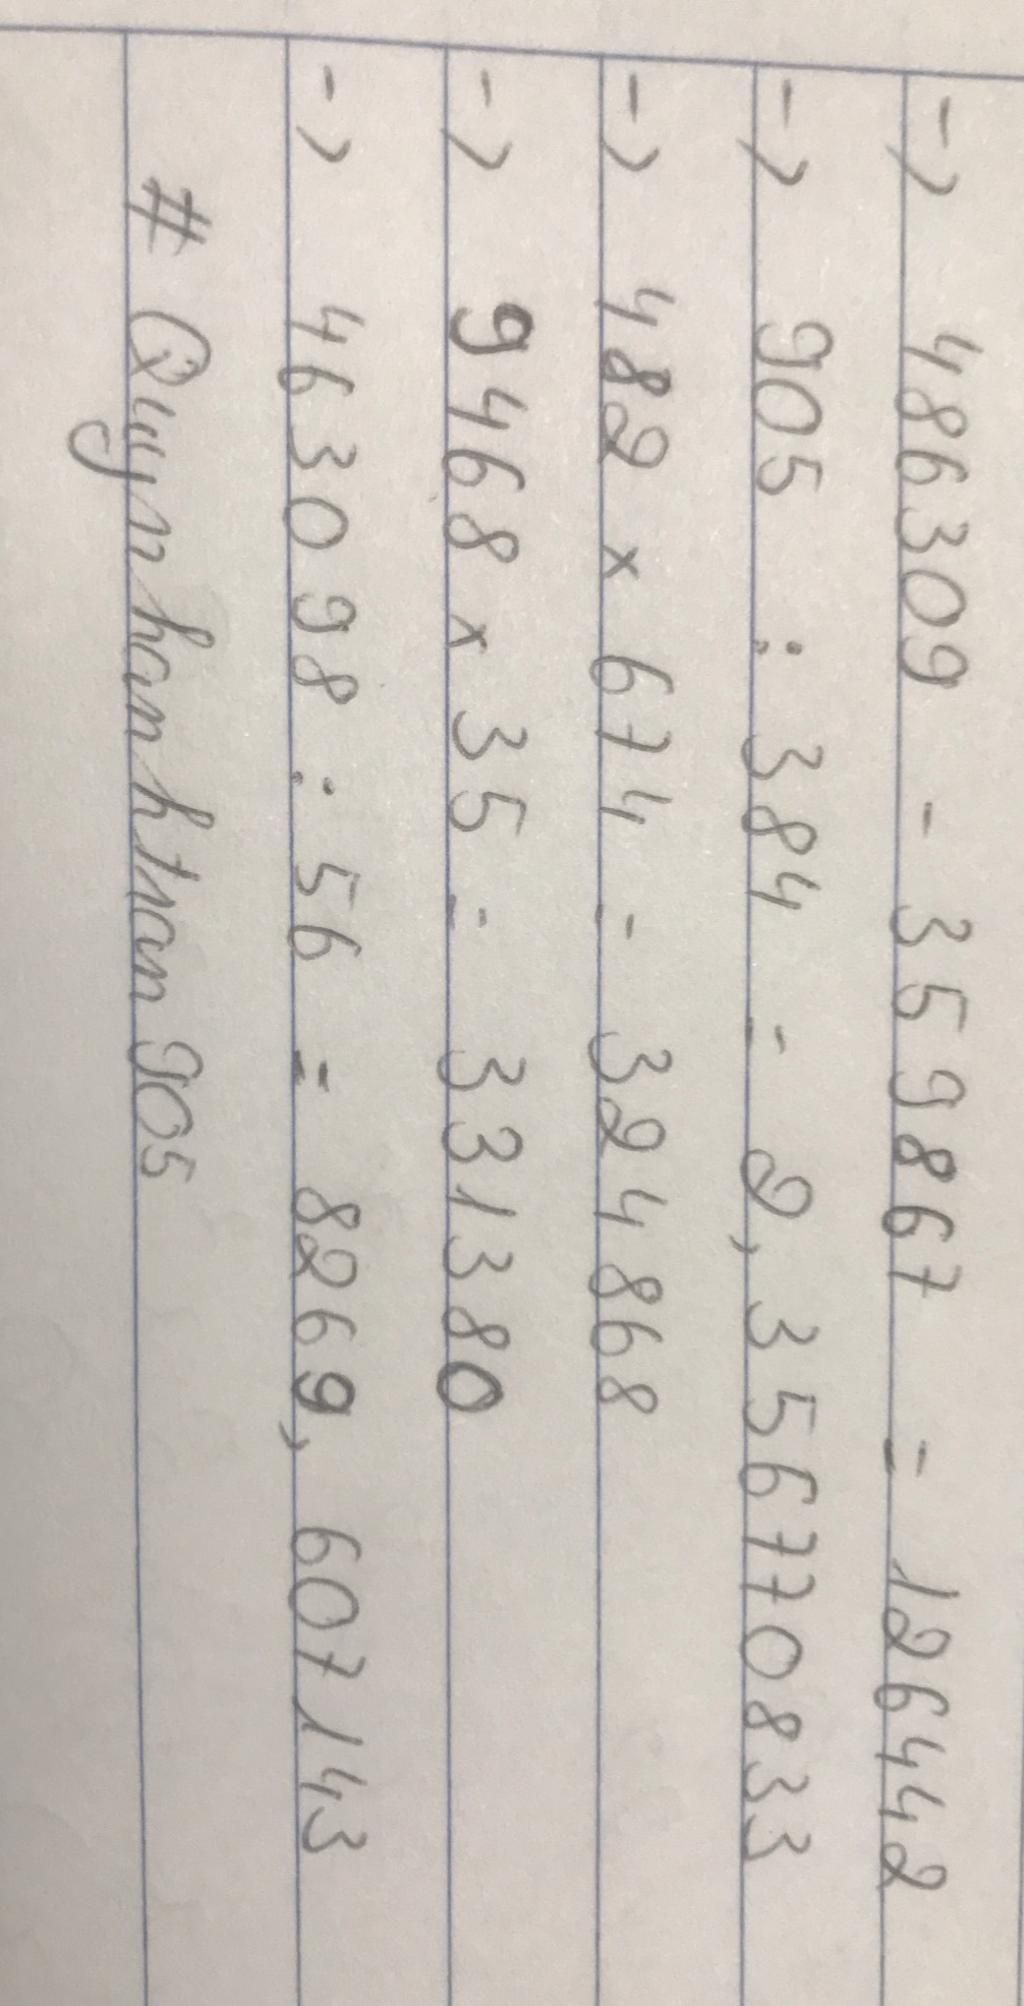 -> 486309 - 359867 = 126442
-> 905 : 384 = 2,356770833
-> 482 x 674 = 324868
-> 9468 x 35 = 331380
-> 463098 : 56 = 8269,607143
# Quynhanhthan905